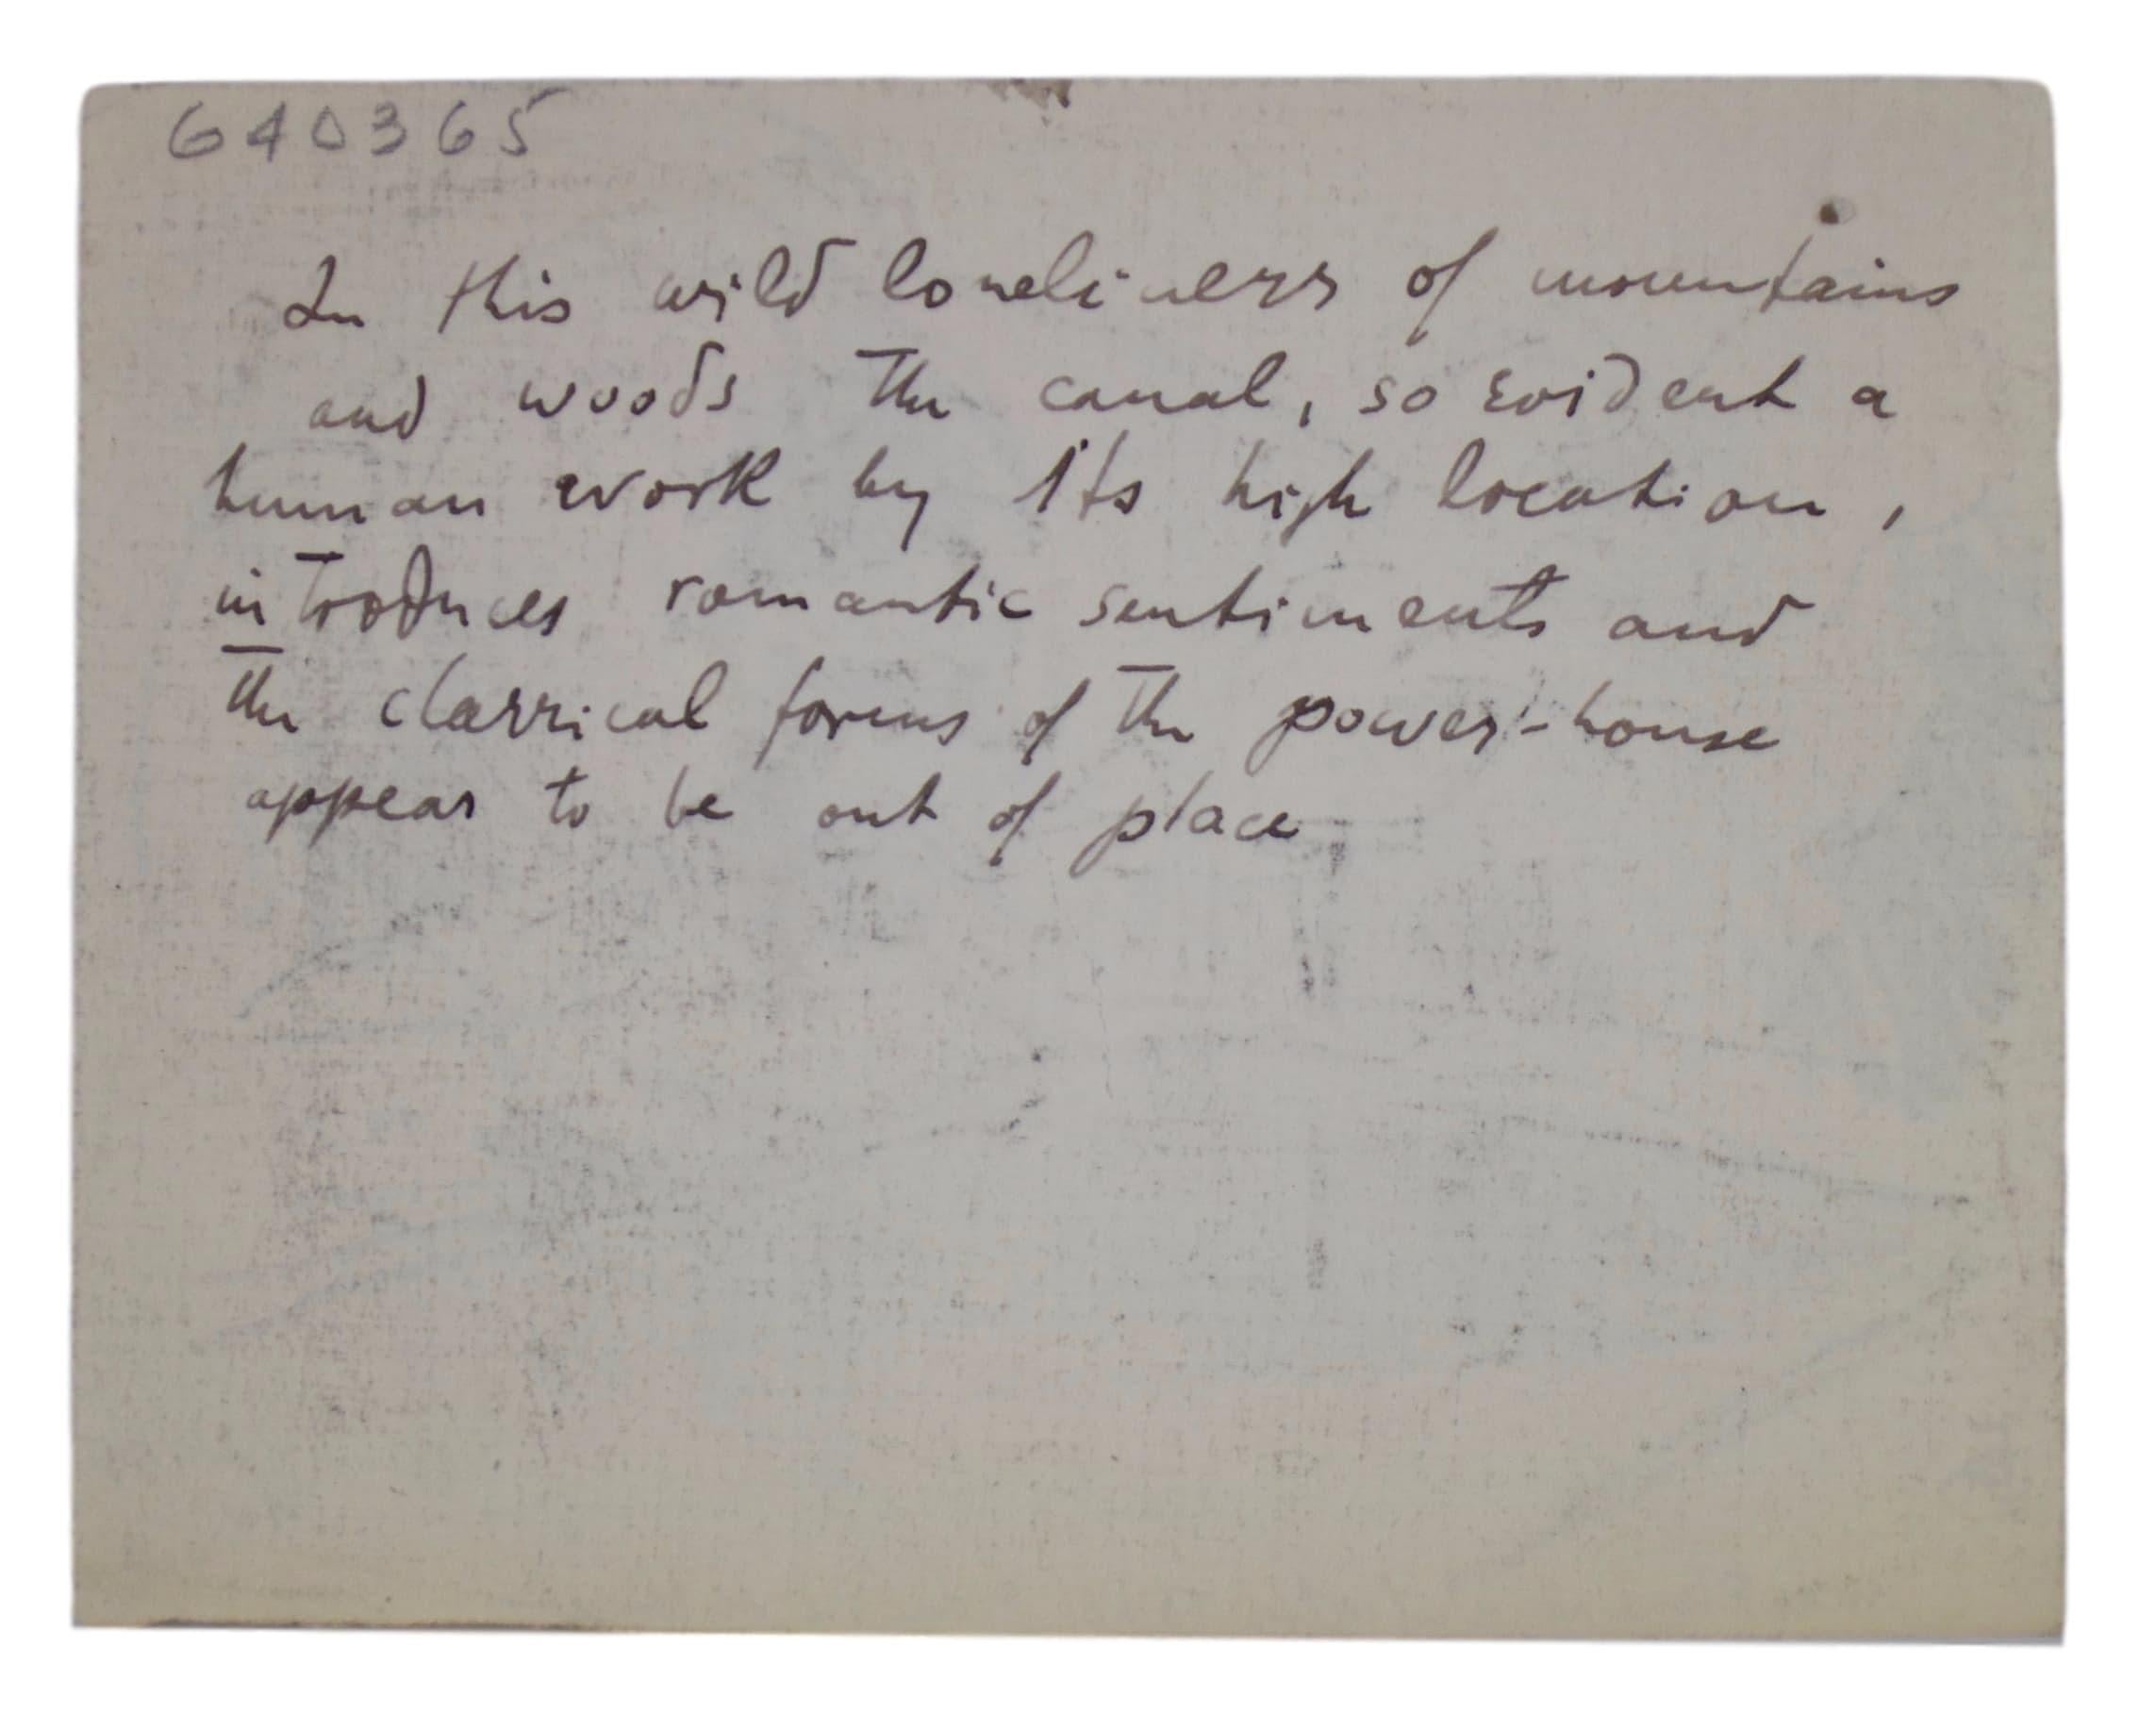 640365
In this wild loneliness of mountains
and woods the canal, so evident a
human work by its high location,
introduces romantic sentiments and
the classical forms of the power-house
appear to be out of place